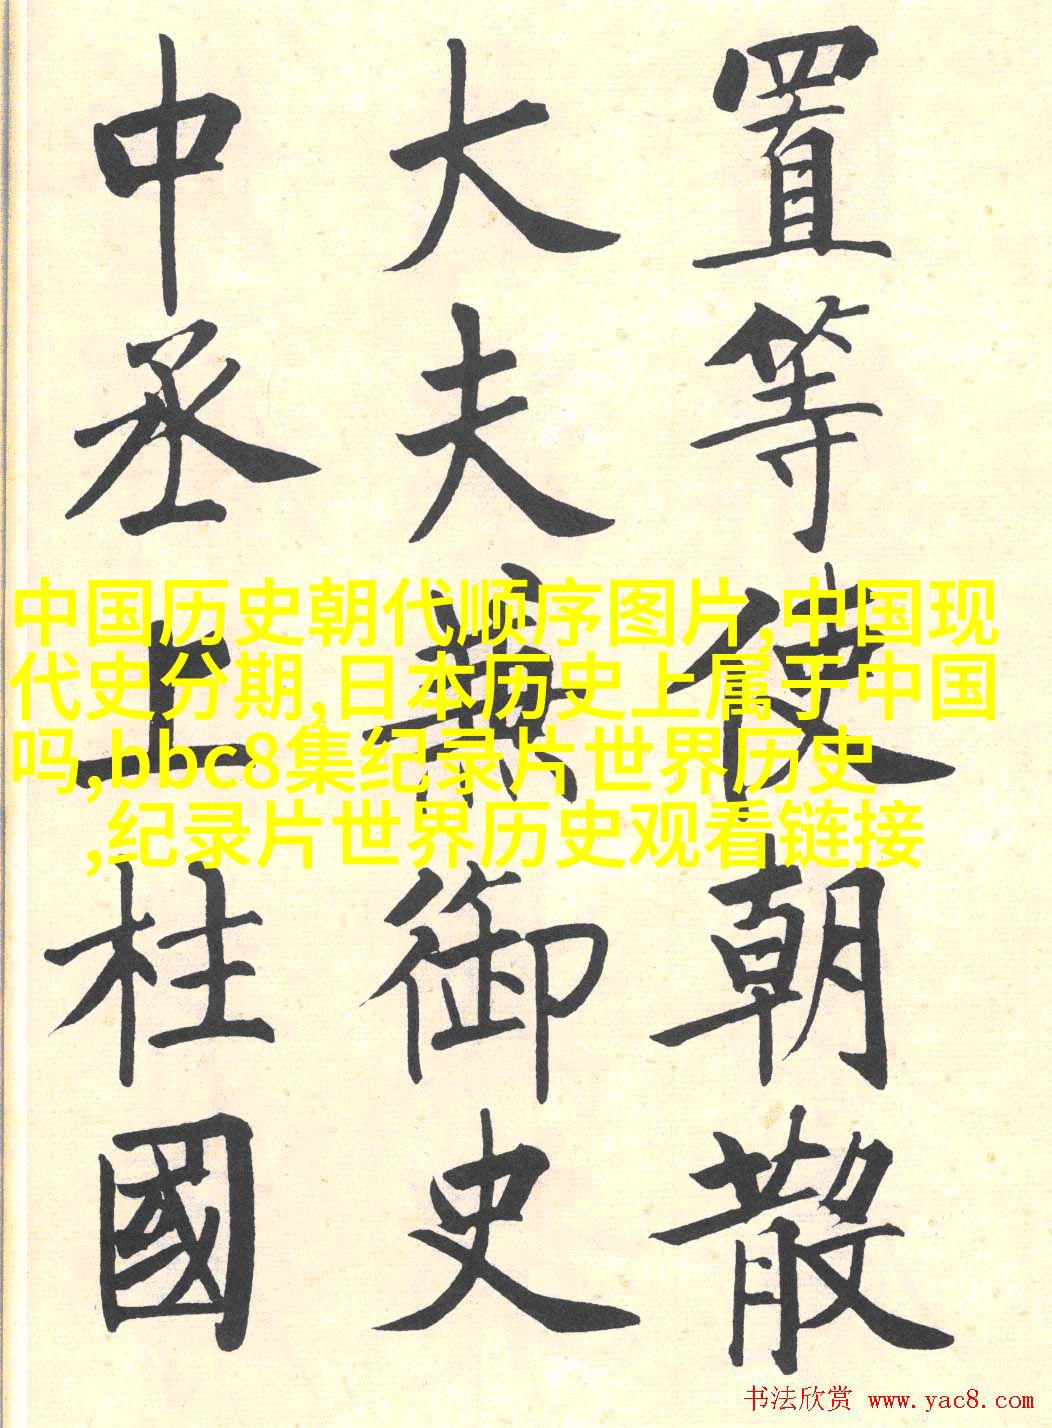 置等使朝散
大夫兼御史
中丞上柱國
中国历史朝代顺序图片,中国现
代史分期,日本历史上属于中国
吗,bbc8集纪录片世界历史
,纪录片世界历史观看链接
书法欣赏 www.yac8.com